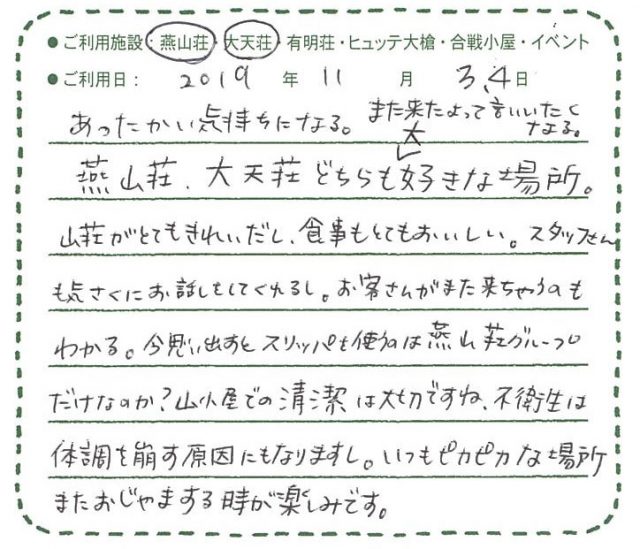 ● ご利用施設・燕山荘・大天荘・有明荘・ヒュッテ大槍・合戦小屋・イベント
● ご利用日： 2019 年 11 月 3,4 日
あったかい気持ちになる。 また来たよって言いたく
なる。
大
燕山荘、大天荘どちらも好きな場所。
山荘がとてもきれいだし、食事もとてもおいしい。スタッフさん
も気さくにお話しをしてくれるし。お客さんがまた来ちゃうのも
わかる。今思い出すとスリッパを使うのは燕山荘グループ
だけなのか？山小屋での清潔は大切ですね、不衛生は
体調を崩す原因にもなりますし。いつもピカピカな場所
またおじゃまする時が楽しみです。